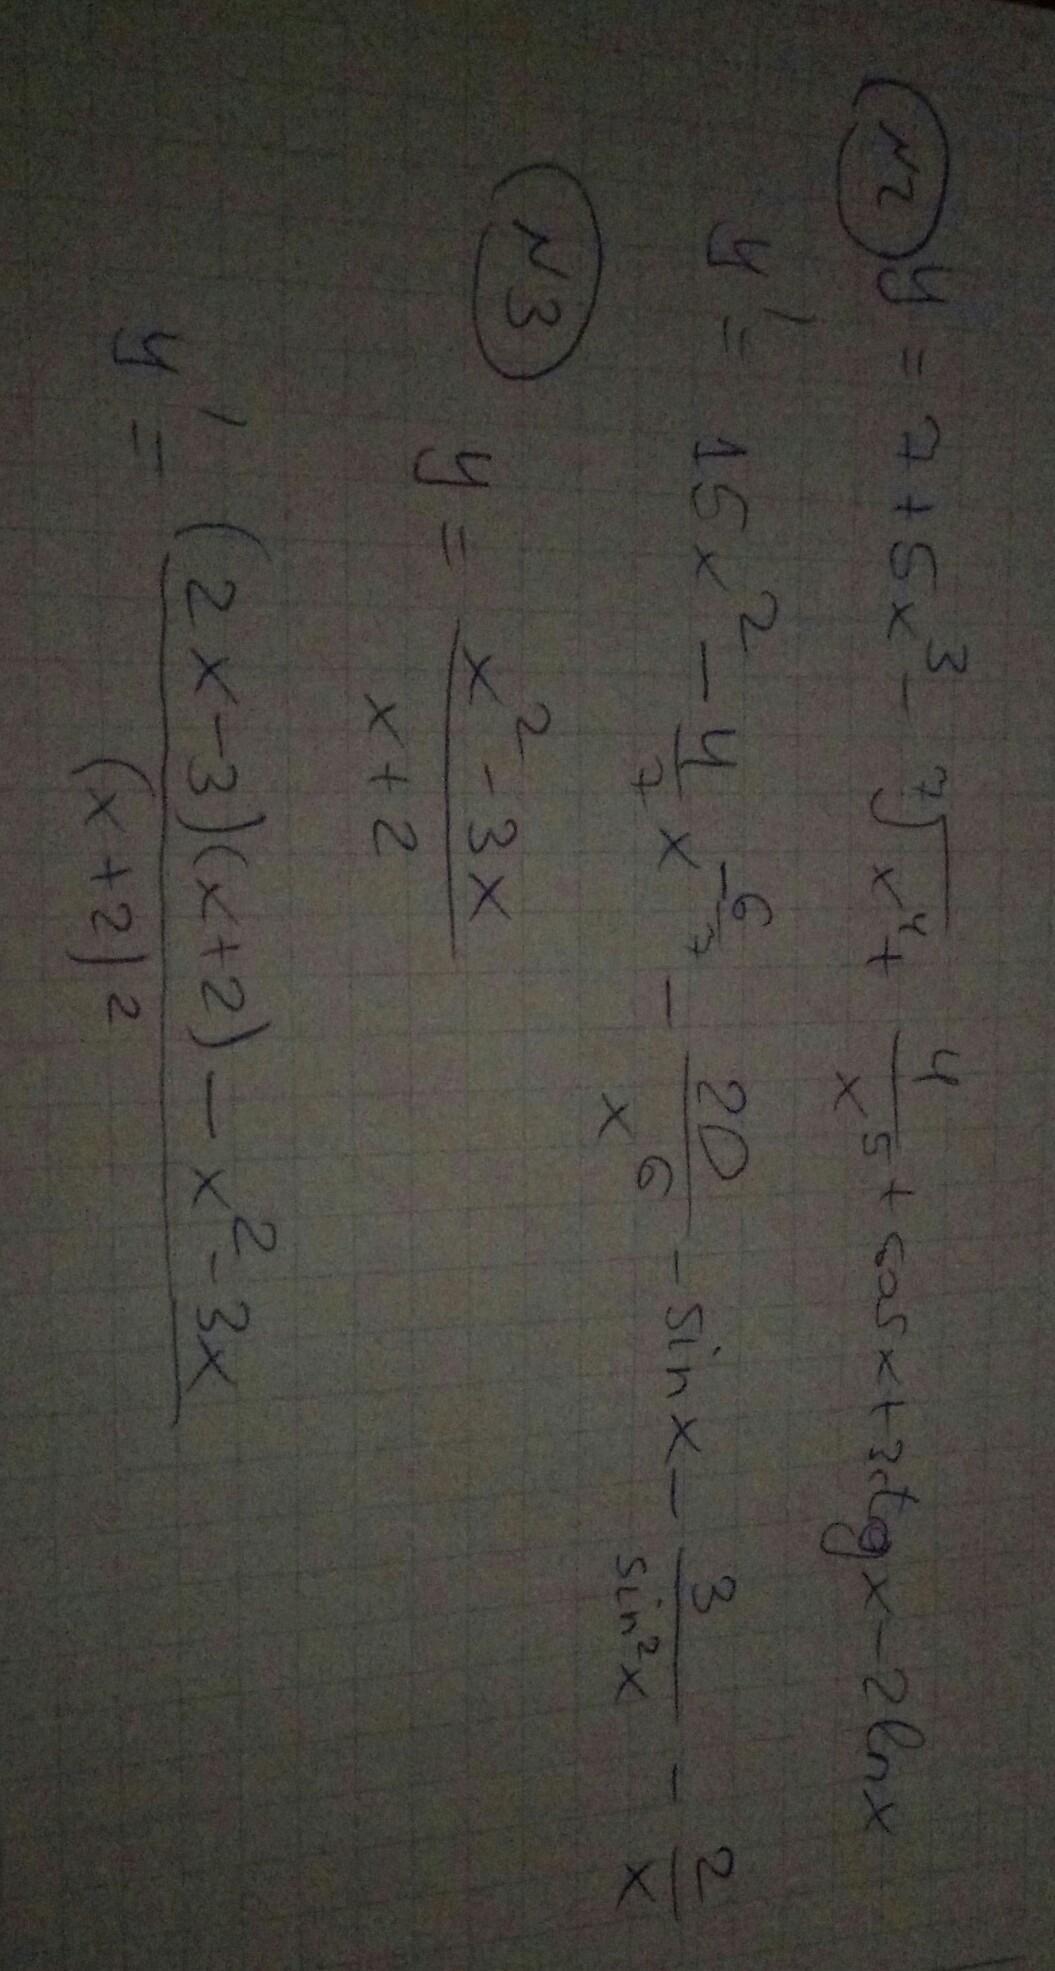 N2 y = 7 + 5x³ - ⁷√x⁴ + 4/x⁵ + cos x + 3ctgx - 2lnx
y' = 15x² - 4/7 x^(-6/7) - 20/x⁶ - sin x - 3/sin²x - 2/x
N3
y = (x² - 3x)/(x + 2)
y' = ((2x - 3)(x + 2) - x² - 3x)/(x + 2)²